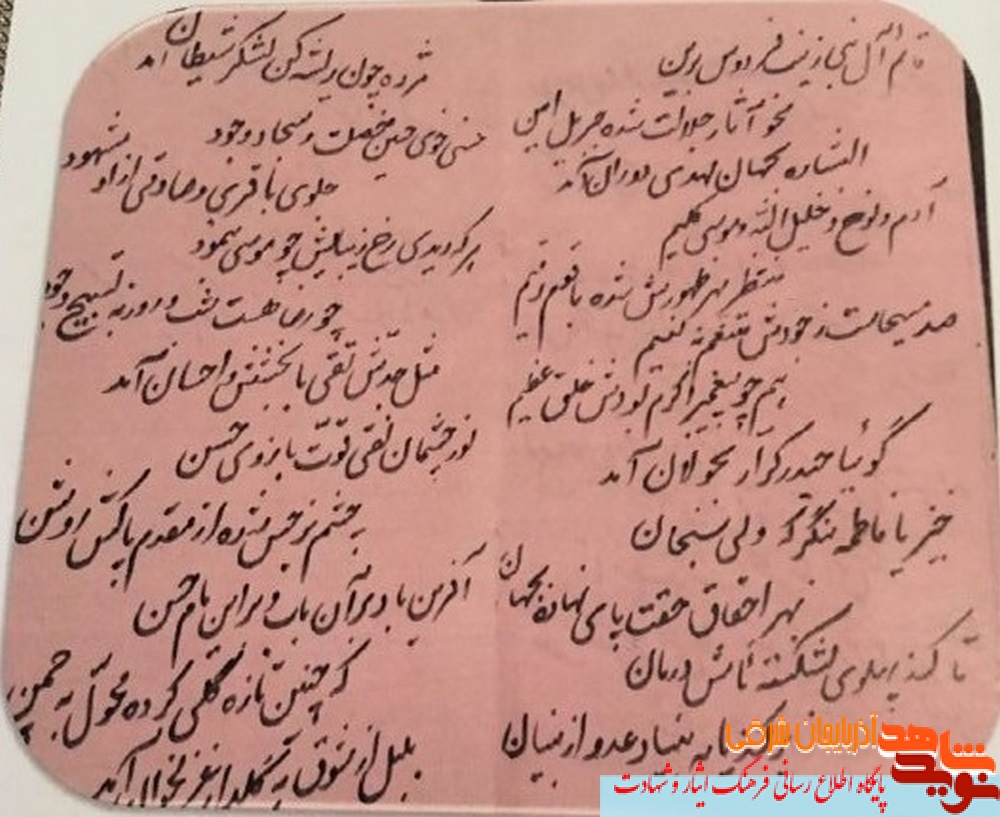 قائم آل نبی زینت فردوس برین
محو آثار جلالت شده جبریل امین
به جهان مهدی دوران آمد
آدم و نوح و خلیل الله و موسی کلیم
منتظر بهر ظهورش شده با قوم
صد مسیحاست ز جودش متنعم به نعیم
هم چو پیغمبر اکرم بودش خلق عظیم
گوئیا حیدر کرار بجولان آمد
خیز یا فاطمه بنگر که ولی سبحان
بهر احقاق حقت پای نهاده بجهان
تا کند پهلوی بشکسته ات درمان
بنیاد عدو از بنیان
مژده چون ریشه کن لشکر شیطان آمد
حسنی خوی حسین خصلت و سجاد وجود
علوی باقری و صادقی از او مشهود
هر که دیدی رخ زیبایش چو موسی
چو رضا هست شب و روز به تسبیح و
مثل جدش تقی با بخشش و احسان آمد
نور چشمان نقی قوت بازوی حسن
چشم نرجس شده از مقدم پاکش روشن
آفرین باد بر آن باب و بر این مام حسن
که چنین تازه گلی کرده محول به چمن
بلبل از شوق آمد
نوید شاهد
آذربایجان شرقی
پایگاه اطلاع رسانی فرهنگ ایثار و شهادت